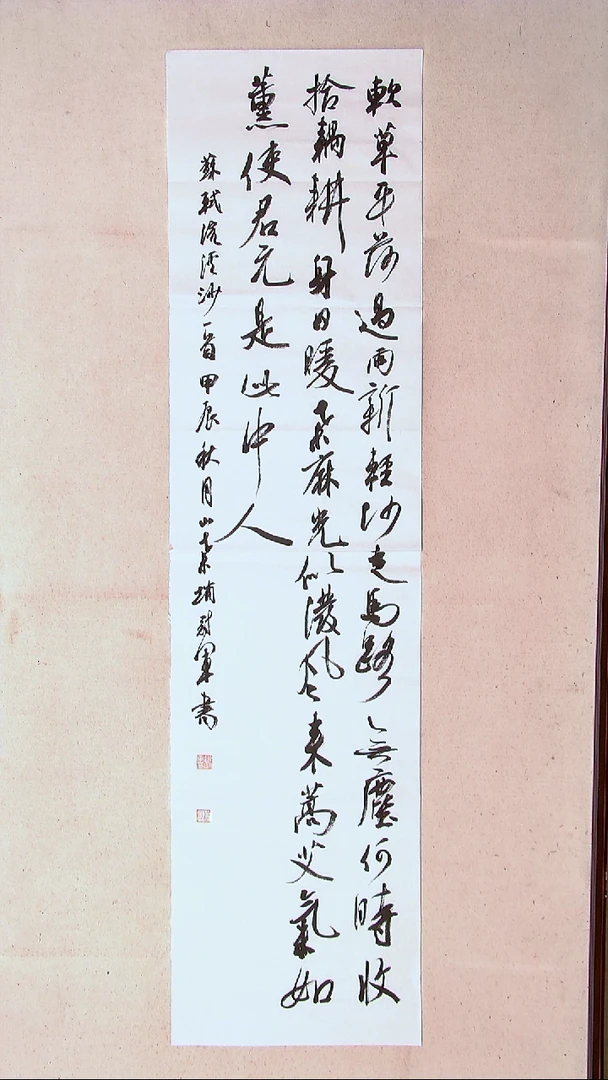 軟草平莎過雨新輕沙走馬路無塵何時收
拾耦耕身日暖桑麻光似潑風來蒿艾氣如
薰使君元是此中人
蘇軾浣溪沙一首甲辰秋月山東軍書